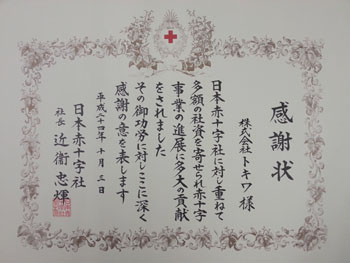 感謝状
株式会社トキワ様
日本赤十字社に対し重ねて
多額の社資を寄せられ赤十字
事業の進展に多大の貢献
をされました
その御功労に対しここに深く
感謝の意を表します
平成二十四年十月三日
日本赤十字社
社長 近衞忠煇